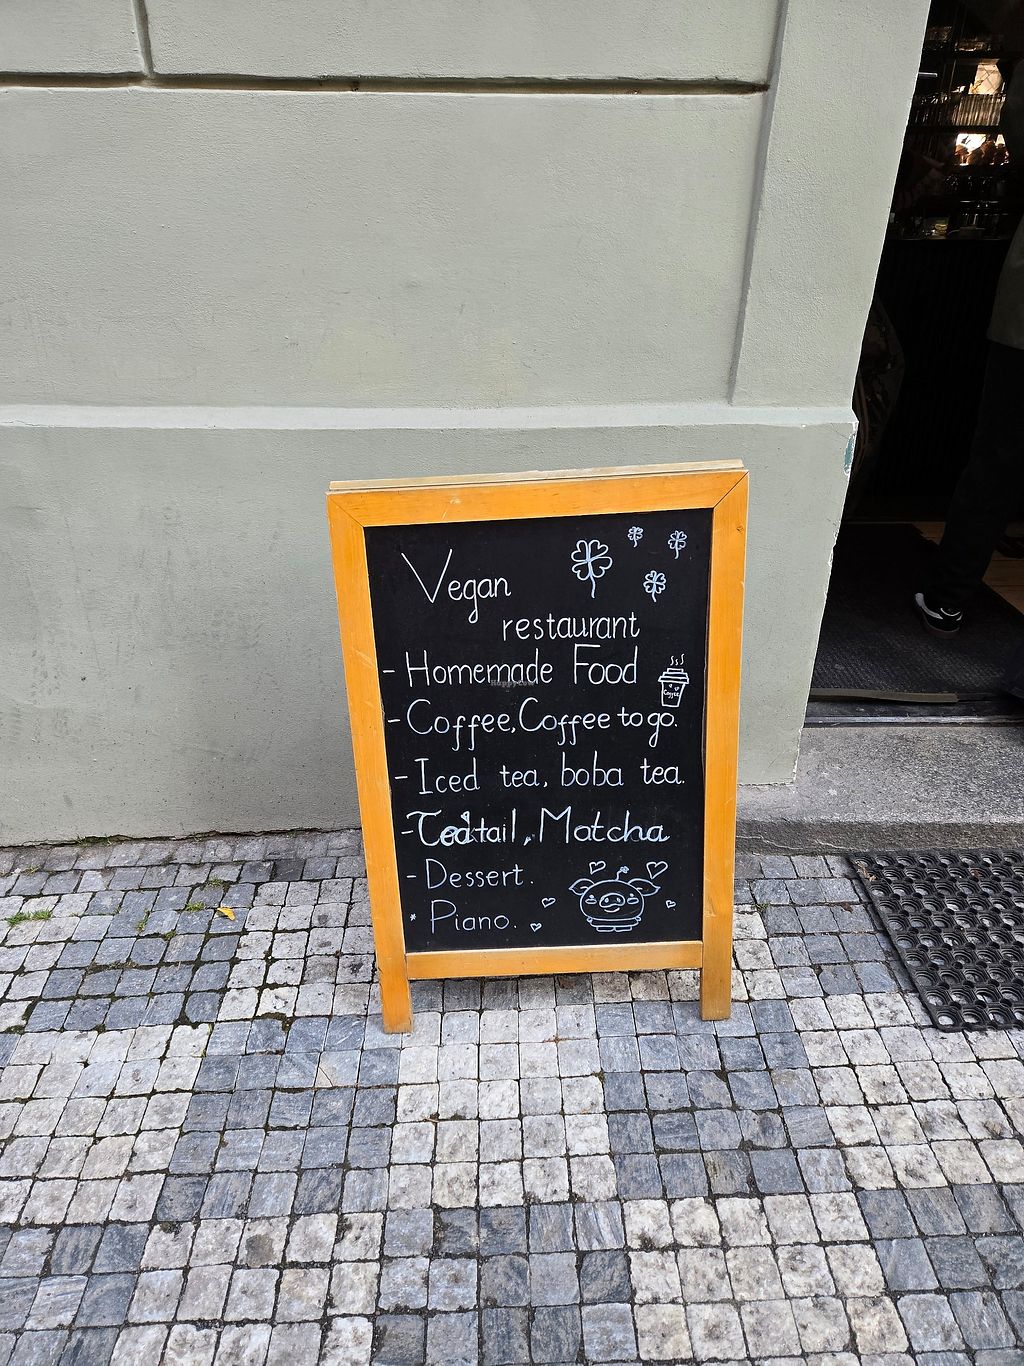 Vegan
restaurant
- Homemade Food
HappyCow
Coffee
- Coffee, Coffee to go.
- Iced tea, boba tea.
- , Matcha
- Dessert.
* Piano.